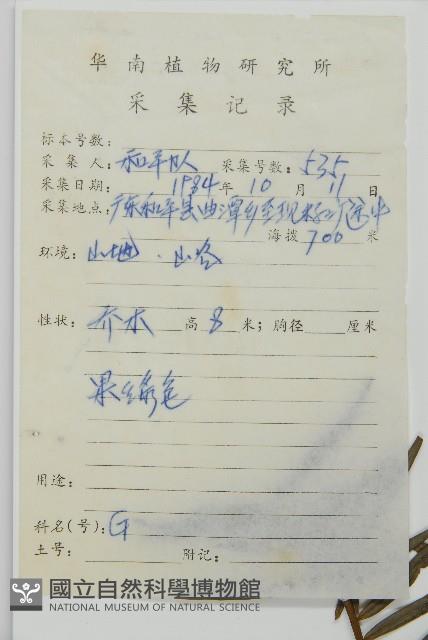 华南植物研究所
采集记录
标本号数:
采集人: 和平队 采集号数: 535
采集日期: 1984年10月11日
采集地点: 广东和平县曲潭乡至 途中
海拨 700 米
环境: 山地.山谷
性状: 乔木 高 8 米; 胸径 厘米
果绿色
用途:
科名(号): G
土号: 附记:
國立自然科學博物館
NATIONAL MUSEUM OF NATURAL SCIENCE